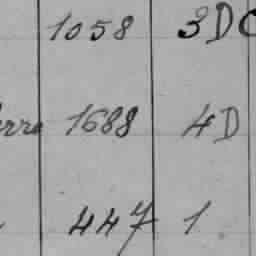 1058 3D
1688 4D
447 1